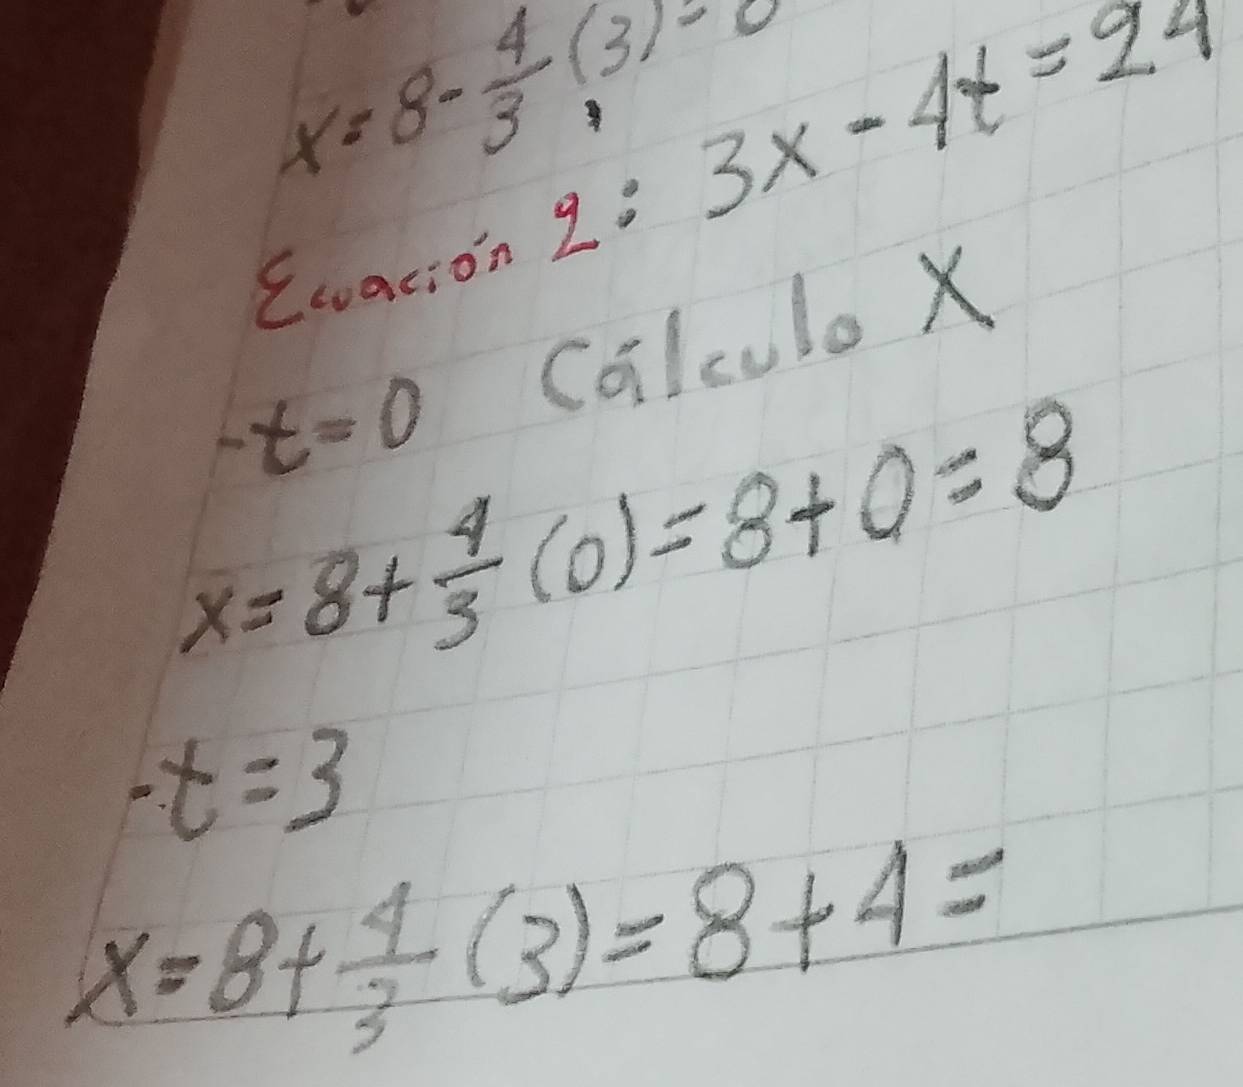 x=8-4/3(3)=
Ecuación 2: 3x-4t=24
-t=0 Cálculo X
x=8+4/3(0)=8+0=8
-t=3
x=8+4/3(3)=8+4=